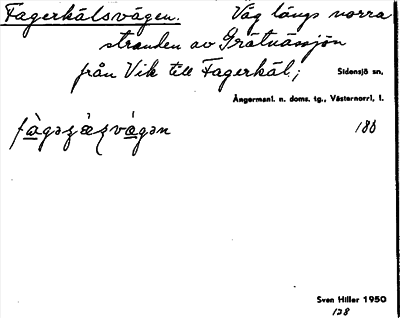 Fagerkälsvägen. Väg längs norra
stranden av Grätnässjön
från Vik till Fagerkäl;
Sidensjö sn,
Ångermanl. n. doms. tg., Västernorrl. l.
186
Sven Hiller 1950
128